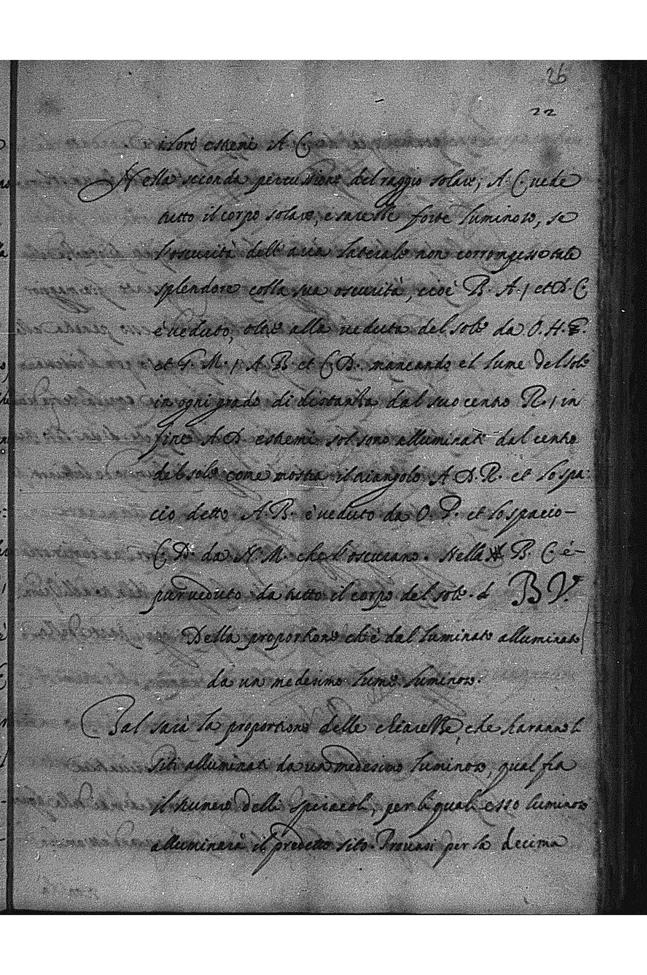 26
22
i loro estremi A. C.
Nella seconda percussione del raggio solare, A. C. vede
tutto il corpo solare, e sarebbe forte luminoso, se
l'oscurità dell'aria laterale non corrompesse tale
splendore colla sua oscurità, cioè B. A, et D. C
è veduto, oltre alla veduta del sole da O. H. F.
et G. M, A B et C D. mancando el lume del sole
in ogni grado di distantia dal suo centro R, in
fine A D estremi sol sono alluminati dal centro
del sole come mostra il triangolo A D. R. et lo spa:
cio detto A B. è veduto da O P. et lo spacio-
C. D. da N. M. che l'oscurano. Nella B. C é-
pur veduto da tutto il corpo del sole. d B V.
Della proportione ch'è dal luminato alluminato
da un medesimo lume luminoso.
Tal sarà la proportione delle chiarezze, che haranno l
siti alluminati da un medesimo luminoso, qual fia
il numero delli spiracoli, per li quali esso luminoso
alluminerà il predetto sito. Provasi per la decima